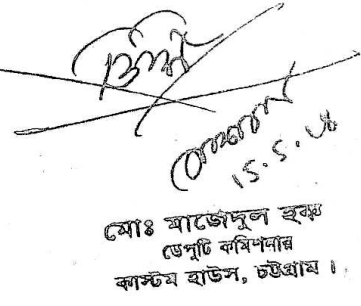 ১৫.৫.১৮
মোঃ মাজেদুল হক
ডেপুটি কমিশনার
কাস্টম হাউস, চট্টগ্রাম।